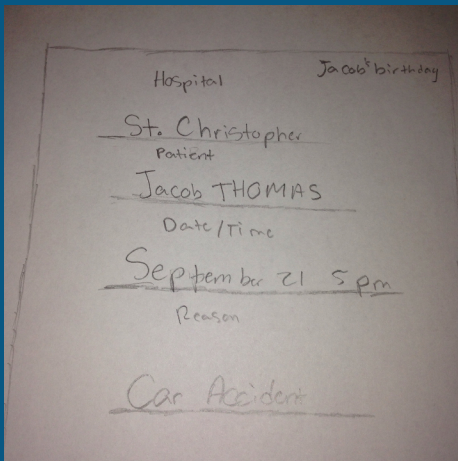 Jacob's birthday
Hospital
St. Christopher
Patient
Jacob THOMAS
Date/Time
September 21 5 pm
Reason
Car Accident